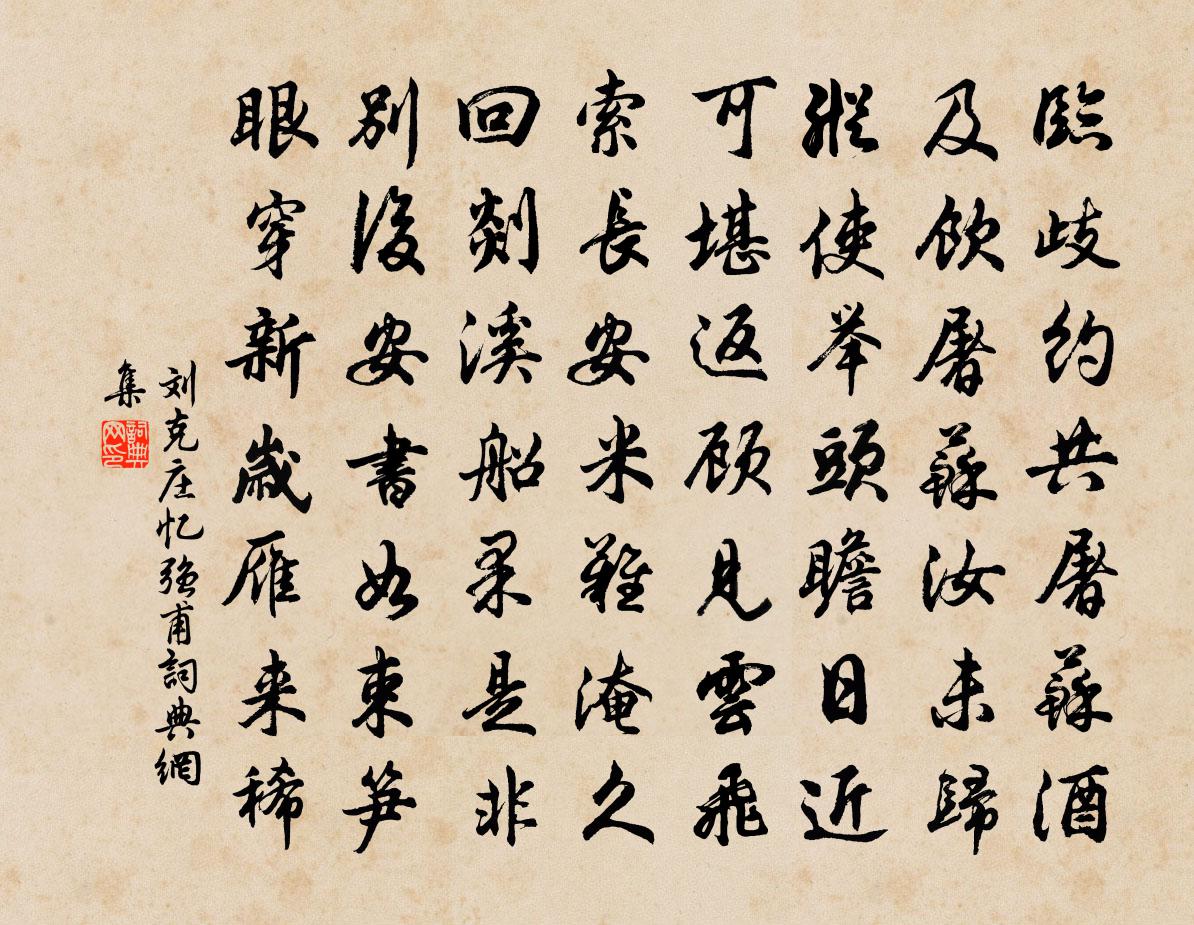 臨歧約共屠蘇酒
及飲屠蘇汝未歸
縱使举頭瞻日近
可堪返顾見雲飛
索長安米難淹久
回剡溪船果是非
別後安書如束笋
眼穿新歲雁来稀
刘克庄忆強甫詞典網
集
詞典
网印